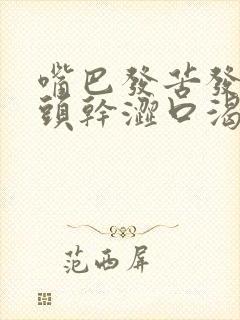 嘴巴發苦發
頭幹澀口渴
范西屏